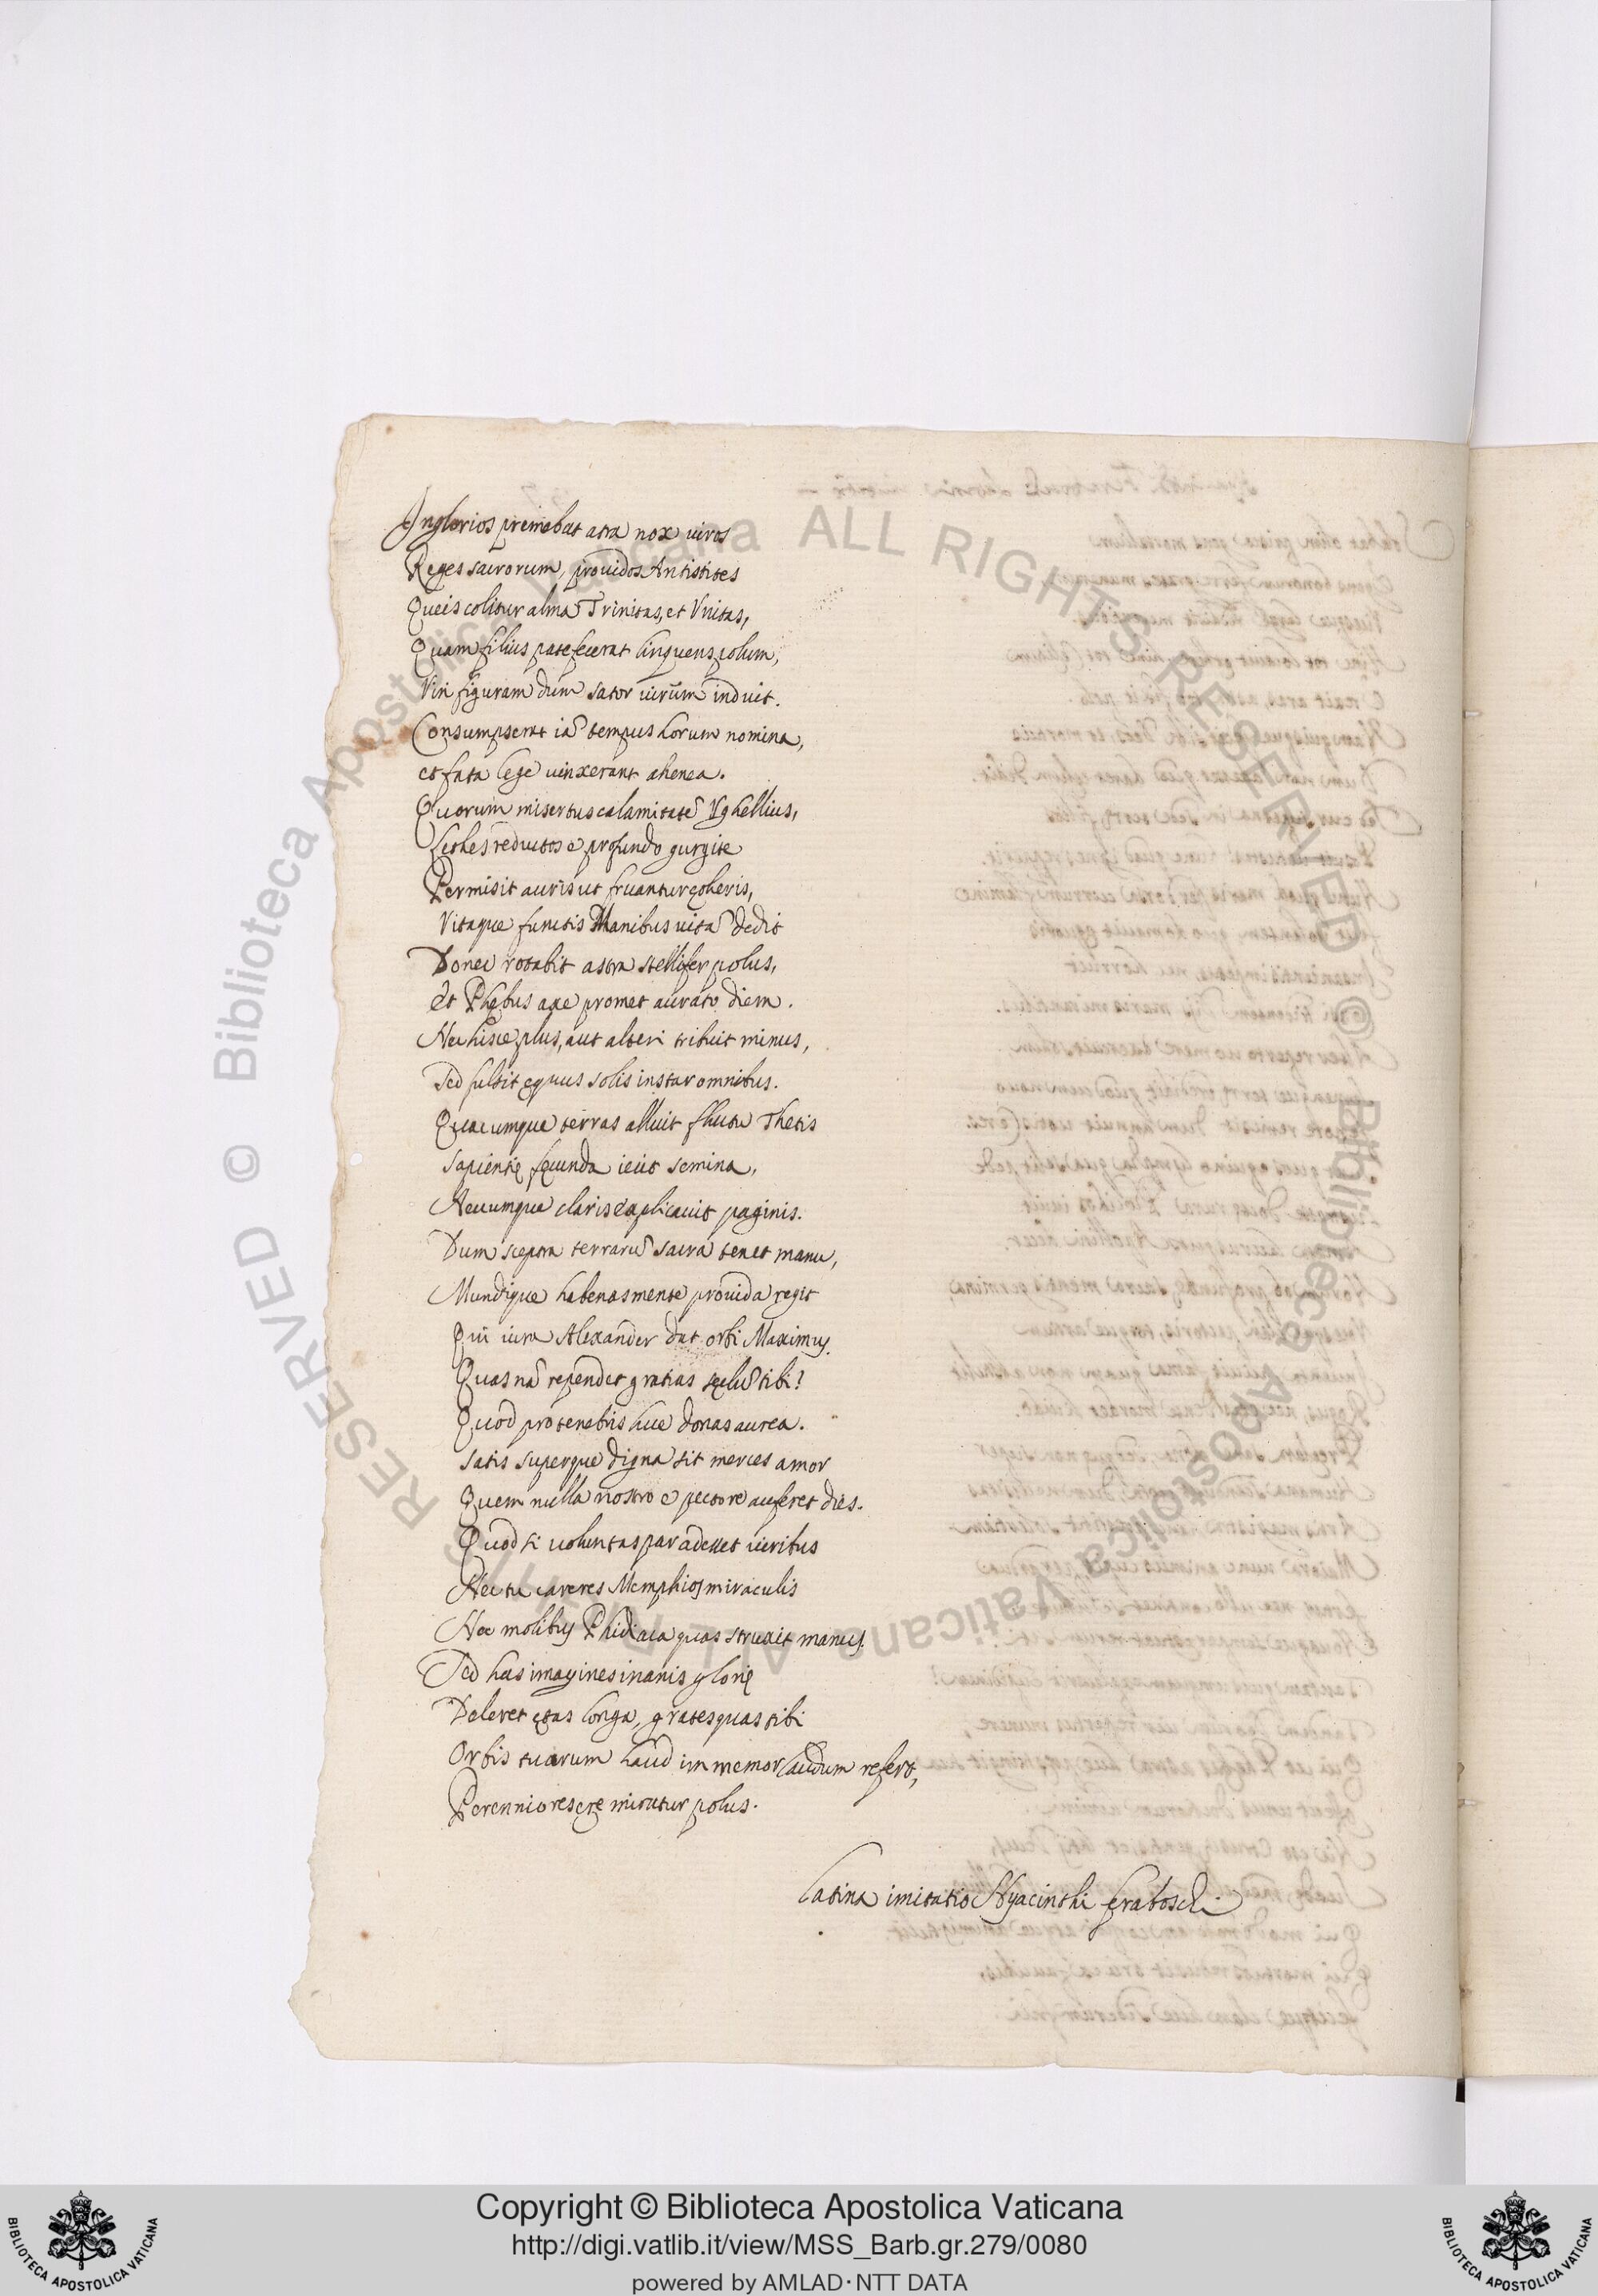 Inglorios premebat atra nox viros
Reges sacrorum, providos Antistites
Queis colitur alma Trinitas, et Vnitas,
Quam filius patefecerat linquens polum,
Viri figuram dum sator virûm induit.
Consumpserat iã tempus horum nomina,
et fata lege vinxerant ahenea.
Quorum misertus calamitatẽ Vghellius,
Lethes reductos e profundo gurgite
Permisit auris ut fruantur ętheris,
Vitaque functis Manibus vitã dedit
Donec rotabit astra stellifer polus,
et Phębus axe promet aurato diem.
Nec hisce plus, aut alteri tribuit minus,
Sed fulsit ęquus solis instar omnibus.
Quacumque terras alluit fluctu Thetis
Sapientię fęcunda iecit semina,
Aevumque claris explicavit paginis.
Dum sceptra terrarũ sacra tenet manu,
Mundique habenas mente provida regit
Qui iura Alexander dat orbi Maximus.
Quas nã rependet gratias sęclũ tibi?
Quod pro tenebris luce donas aurea.
Satis superque digna sit merces amor
Quem nulla nostro e pectore auferet dies.
Quod si voluntas par adesset viribus
Nec tu careres Memphios miraculis
Nec molibus Phidiaca quas struxit manus.
Sed has imagines inanis glorię
Deleret ętas longa, grates quas tibi
Orbis tuarum haud immemor laudum refert,
Perenniores ęre miratur polus.
Latina imitatio Hyacinthi
© Biblioteca Apostolica Vaticana ALL RIGHTS RESERVED © Biblioteca Apostolica Vaticana ALL RIGHTS RESERVED
Copyright © Biblioteca Apostolica Vaticana
http://digi.vatlib.it/view/MSS_Barb.gr.279/0080
powered by AMLAD·NTT DATA
BIBLIOTECA APOSTOLICA VATICANA
BIBLIOTECA APOSTOLICA VATICANA